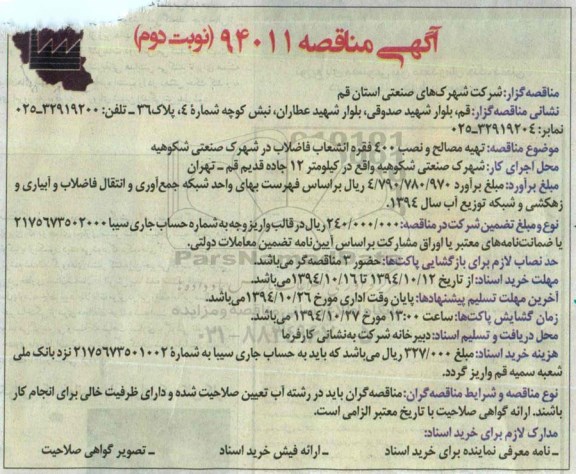 آگهی مناقصه ۹۴۰۱۱ (نوبت دوم)
مناقصه‌گزار: شرکت شهرک‌های صنعتی استان قم
نشانی مناقصه‌گزار: قم، بلوار شهید صدوقی، بلوار شهید عطاران، نبش کوچه شمارهٔ ٤، پلاک۳۶ ـ تلفن: ۳۲۹۱۹۲۰۰ـ۰۲۵
نمابر: ۳۲۹۱۹۲۰٤ـ۰۲۵
موضوع مناقصه: تهیه مصالح و نصب ٤۰۰ فقره انشعاب فاضلاب در شهرک صنعتی شکوهیه
محل اجرای کار: شهرک صنعتی شکوهیه واقع در کیلومتر ۱۲ جاده قدیم قم ـ تهران
مبلغ برآورد: مبلغ برآورد ٤/۷۹۰/۷۸۰/۹۷۰ ریال براساس فهرست بهای واحد شبکه جمع‌آوری و انتقال فاضلاب و آبیاری و
زهکشی و شبکه توزیع آب سال ۱۳۹٤.
نوع و مبلغ تضمین شرکت در مناقصه: ۲٤۰/۰۰۰/۰۰۰ ریال در قالب واریز وجه به شماره حساب جاری سیبا ۲۱۷۵۶۷۳۵۰۲۰۰۰
یا ضمانت‌نامه‌های معتبر یا اوراق مشارکت براساس آیین‌نامه تضمین معاملات دولتی.
حد نصاب لازم برای بازگشایی پاکت‌ها: حضور ۳ مناقصه‌گر می‌باشد.
مهلت خرید اسناد: از تاریخ ۱۳۹٤/۱۰/۱۲ تا ۱۳۹٤/۱۰/۱۶ می‌باشد.
آخرین مهلت تسلیم پیشنهادها: پایان وقت اداری مورخ ۱۳۹٤/۱۰/۲۶ می‌باشد.
زمان گشایش پاکت‌ها: ساعت ۱۳:۰۰ مورخ ۱۳۹٤/۱۰/۲۷ می‌باشد.
محل دریافت و تسلیم اسناد: دبیرخانه شرکت به‌نشانی کارفرما
هزینه خرید اسناد: مبلغ ۳۲۷/۰۰۰ ریال می‌باشد که باید به حساب جاری سیبا به شمارهٔ ۲۱۷۵۶۷۳۵۰۱۰۰۲ نزد بانک ملی
شعبه سمیه قم واریز گردد.
نوع مناقصه و شرایط مناقصه‌گران: مناقصه‌گران باید در رشته آب تعیین صلاحیت شده و دارای ظرفیت خالی برای انجام کار
باشند. ارائه گواهی صلاحیت با تاریخ معتبر الزامی است.
مدارک لازم برای خرید اسناد:
ـ نامه معرفی نماینده برای خرید اسناد ـ ارائه فیش خرید اسناد ـ تصویر گواهی صلاحیت